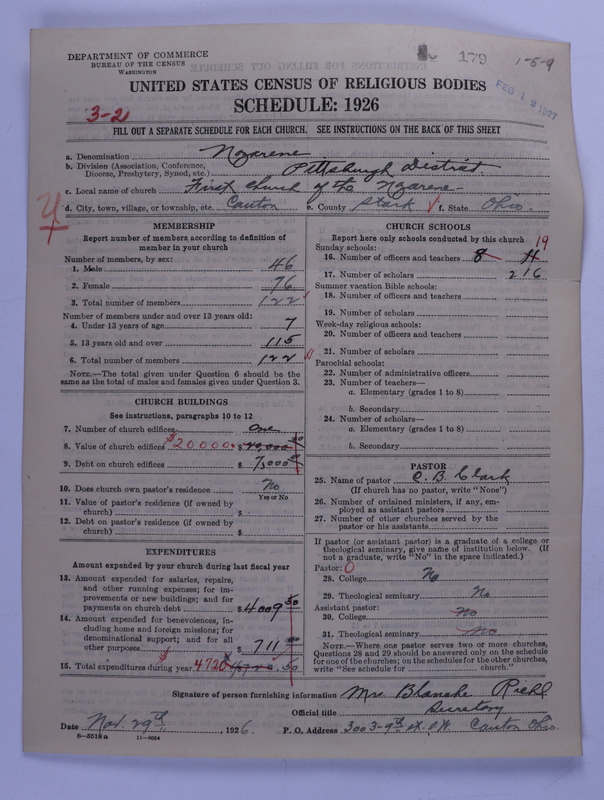 DEPARTMENT OF COMMERCE
BUREAU OF THE CENSUS
WASHINGTON
179
1-5-9
FEB 12 1927
UNITED STATES CENSUS OF RELIGIOUS BODIES
SCHEDULE: 1926
3-21
FILL OUT A SEPARATE SCHEDULE FOR EACH CHURCH. SEE INSTRUCTIONS ON THE BACK OF THIS SHEET
a. Denomination Nazarene
b. Division (Association, Conference, Diocese, Presbytery, Synod, etc.) Pittsburgh District.
c. Local name of church First Church of the Nazarene
d. City, town, village, or township, etc. Canton e. County Stark f. State Ohio.
MEMBERSHIP
Report number of members according to definition of member in your church
Number of members, by sex:
1. Male 46
2. Female 76
3. Total number of members 122
Number of members under and over 13 years old:
4. Under 13 years of age 7
5. 13 years old and over 115
6. Total number of members 122
NOTE.—The total given under Question 6 should be same as the total of males and females given under Question 3.
CHURCH BUILDINGS
See instructions, paragraphs 10 to 12
7. Number of church edifices One
8. Value of church edifices $20000 $20,000 00
9. Debt on church edifices $7,000 00
10. Does church own pastor's residence No
Yes or No
11. Value of pastor's residence (if owned by church) $
12. Debt on pastor's residence (if owned by church) $
EXPENDITURES
Amount expended by your church during last fiscal year
13. Amount expended for salaries, repairs, and other running expenses; for improvements or new buildings; and for payments on church debt $4009 50
14. Amount expended for benevolences, including home and foreign missions; for denominational support; and for all other purposes $711 00
15. Total expenditures during year $4720 $4720 50
CHURCH SCHOOLS
Report here only schools conducted by this church
Sunday schools:
16. Number of officers and teachers 8 11 19
17. Number of scholars 216
Summer vacation Bible schools:
18. Number of officers and teachers
19. Number of scholars
Week-day religious schools:
20. Number of officers and teachers
21. Number of scholars
Parochial schools:
22. Number of administrative officers
23. Number of teachers—
a. Elementary (grades 1 to 8)
b. Secondary
24. Number of scholars—
a. Elementary (grades 1 to 8)
b. Secondary
PASTOR
25. Name of pastor C. B. Clark
(If church has no pastor, write "None")
26. Number of ordained ministers, if any, employed as assistant pastors
27. Number of other churches served by the pastor or his assistants
If pastor (or assistant pastor) is a graduate of a college or theological seminary, give name of institution below. (If not a graduate, write "No" in the space indicated.)
Pastor: 0
28. College No
29. Theological seminary No
Assistant pastor:
30. College No
31. Theological seminary No
NOTE.—Where one pastor serves two or more churches, Questions 28 and 29 should be answered only on the schedule for one of the churches; on the schedules for the other churches, write "See schedule for church."
Signature of person furnishing information Mrs Blanche Riehl
Official title Secretary
Date Nov. 29th, 1926. P. O. Address 3003-9th St. S.W. Canton Ohio.
8-5518a 11-9024